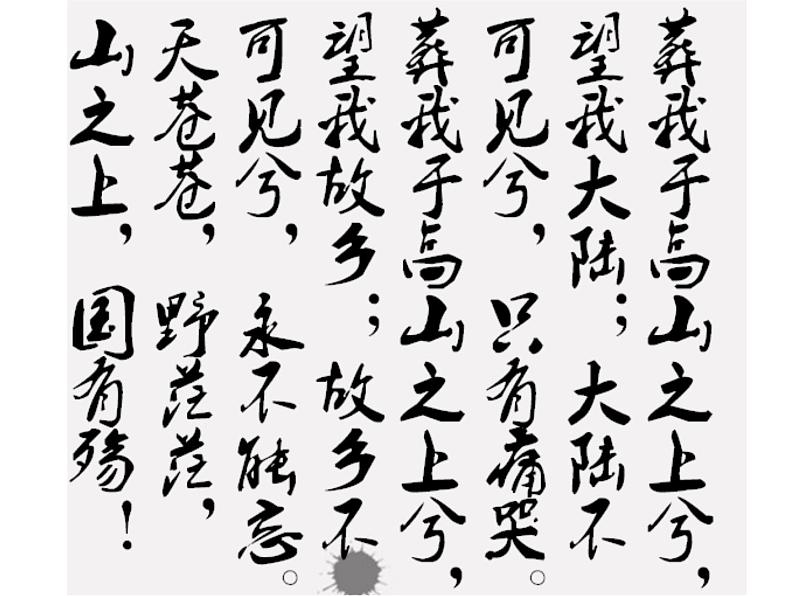 葬我于高山之上兮，
望我大陆；大陆不
可见兮，只有痛哭。
葬我于高山之上兮，
望我故乡；故乡不
可见兮，永不能忘。
天苍苍，野茫茫，
山之上，国有殇！